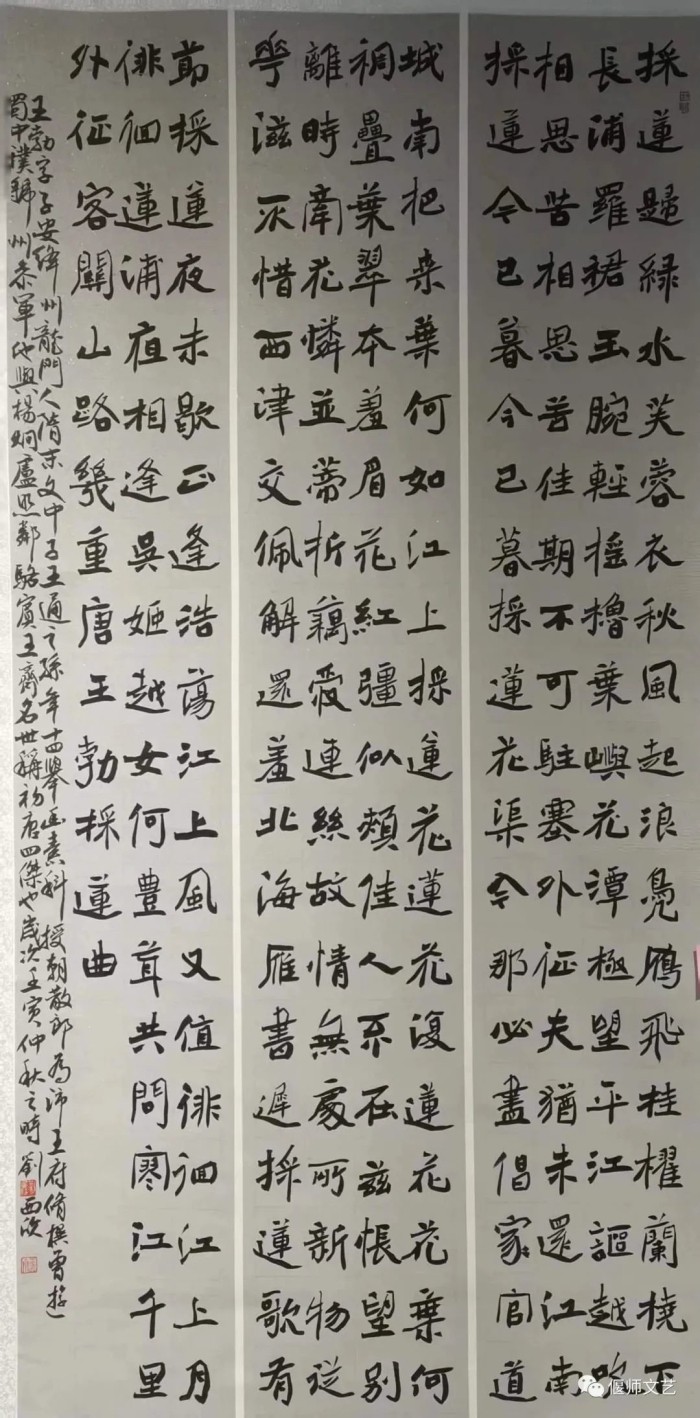 採蓮歸綠水芙蓉衣秋風起浪鳧鴈飛桂櫂蘭橈下
長浦羅裙玉腕輕搖櫓葉嶼花潭極望平江謳越吹
相思苦相思苦佳期不可駐塞外征夫猶未還江南
採蓮今已暮今已暮採蓮花渠今那必盡倡家官道
城南把桒葉何如江上採蓮花蓮花復蓮花花葉何
稠疊葉翠本羞眉花紅彊似頰佳人不在茲悵望別
離時牽花憐並蒂折藕愛連絲故情無處所新物從
華滋不惜西津交佩解還羞北海雁書遲採蓮歌有
節採蓮夜未歇正逢浩蕩江上風又值徘徊江上月
徘徊蓮浦夜相逢吳姬越女何豐茸共問寒江千里
外征客關山路幾重唐王勃採蓮曲
王勃字子安絳州龍門人隋末文中子王通之孫年十四舉幽素科授朝散郎為沛王府脩撰曾遊
蜀中補虢州參軍他與楊炯盧照鄰駱賓王齊名世稱初唐四傑也歲次壬寅仲秋之時劉西
偃师文艺